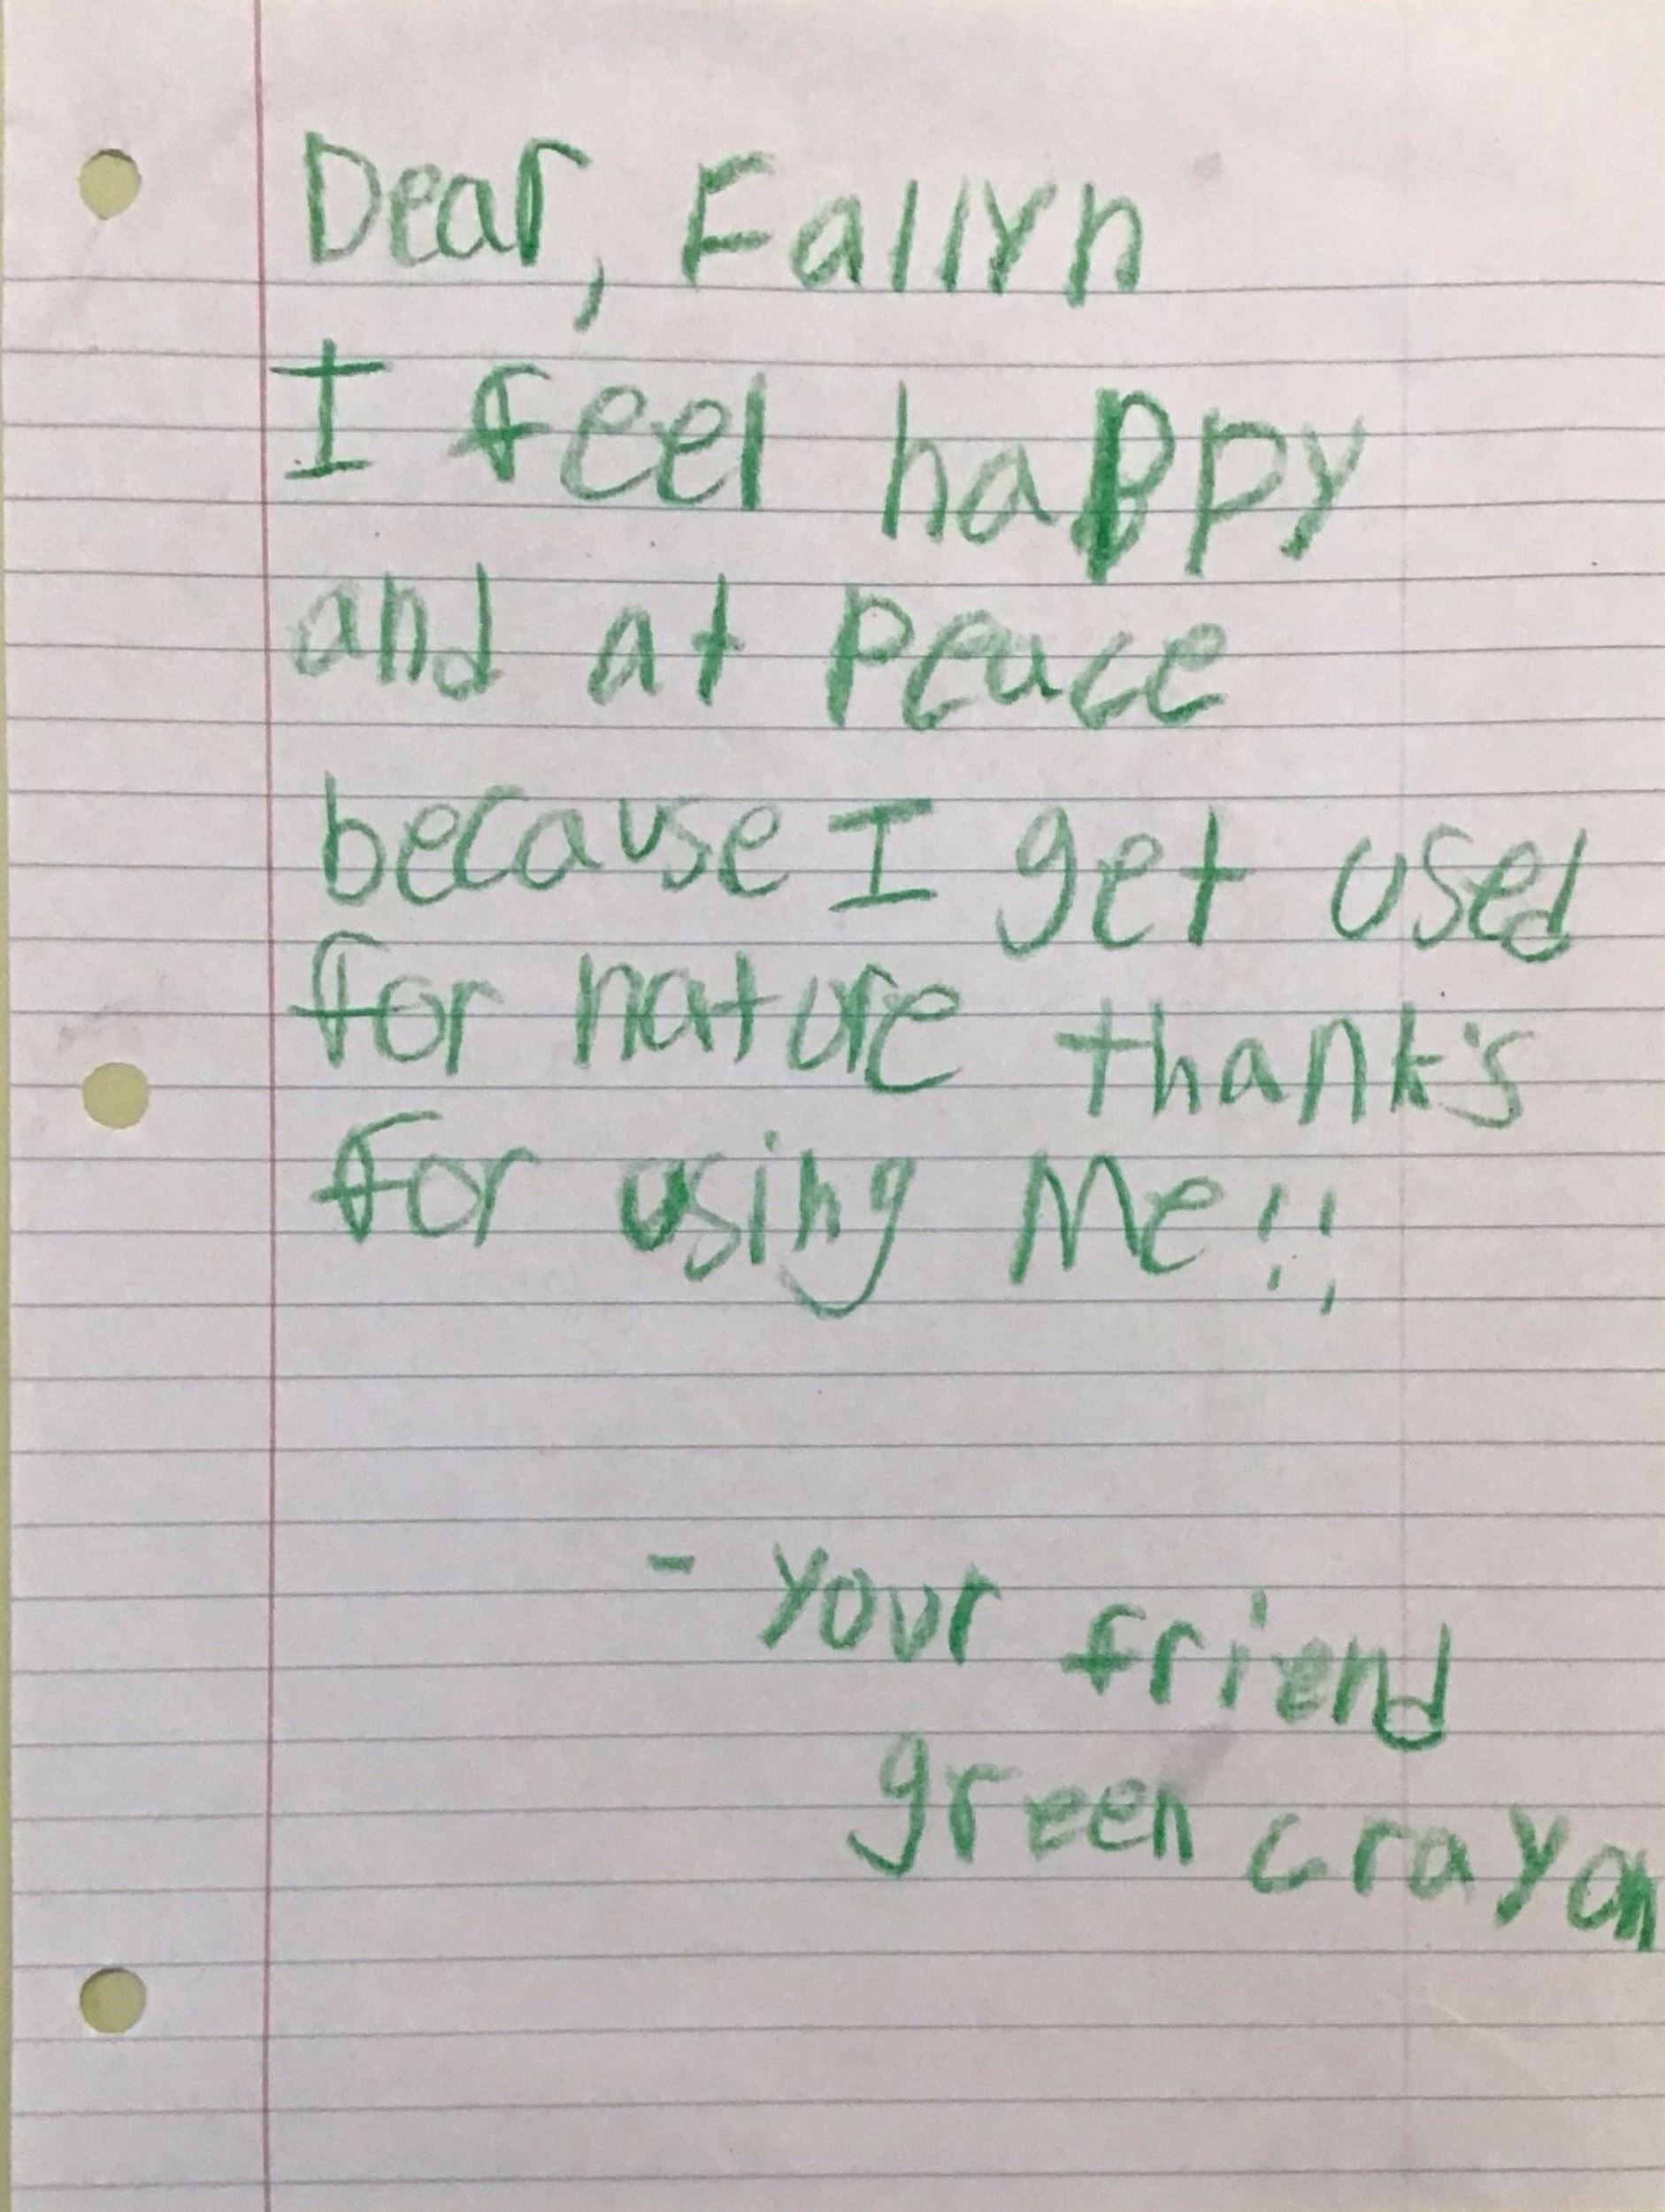 Dear, Fallyn
I feel happy
and at peace
because I get used
for nature thank's
for using Me!!
- your friend
green crayon